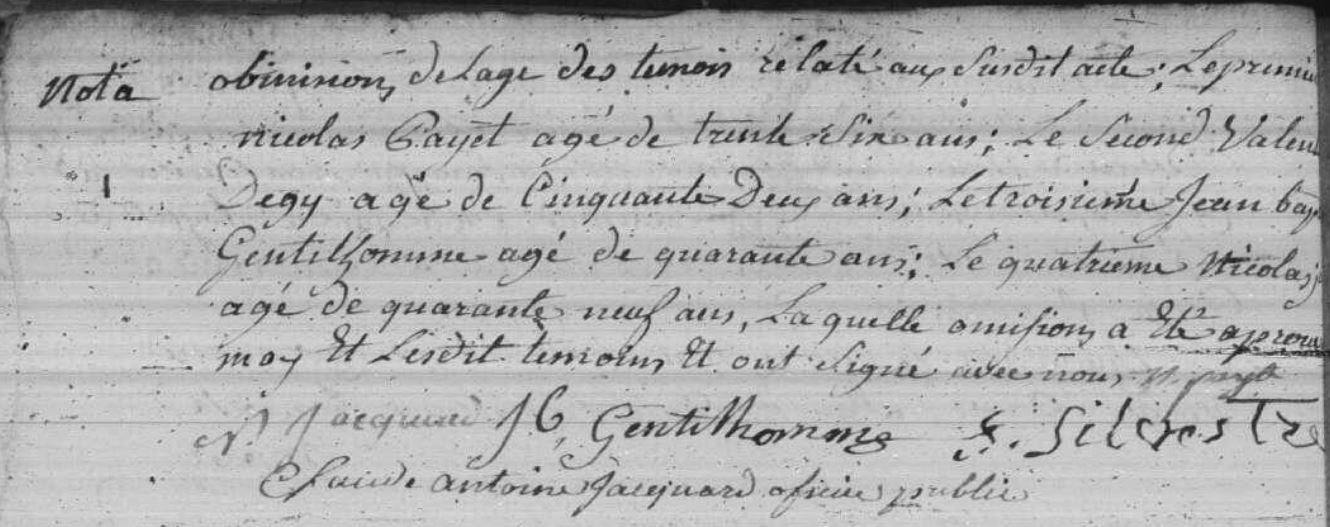 Nota obmission de Lage des temoin relaté aux Susdit acte; Le premie
nicolas Payet agé de trente Six ans; Le Second Valen
Degy agé de Cinquante Deux ans; Le troisieme Jean bap
Gentilhomme agé de quarante ans; Le quatrieme Nicolas
agé de quarante neuf ans, Laquelle omission a Eté aprouv
moy Et Lesdit temoins Et ont Signé avec nous N. payet
N. Jacquard J b, Gentilhomme Silvestre
Claude antoine Jacquard oficier public